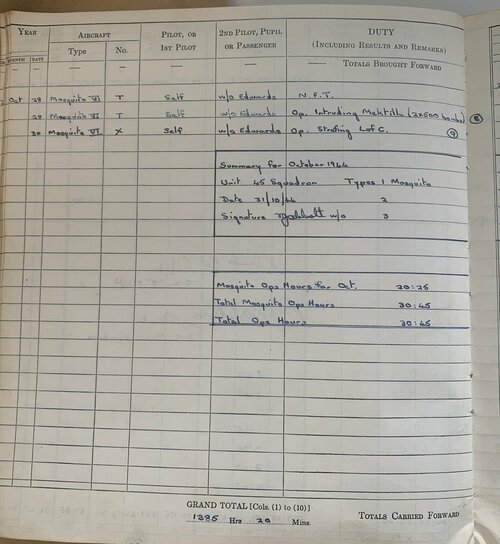 YEAR AIRCRAFT PILOT, OR 2ND PILOT, PUPIL DUTY
MONTH DATE Type No. 1ST PILOT OR PASSENGER (INCLUDING RESULTS AND REMARKS)
— — — — — — TOTALS BROUGHT FORWARD
Oct 28 Mosquito VI T Self w/o Edwards N.F.T.
28 Mosquito VI T Self w/o Edwards Op. Intruding Meiktila (2x500 bombs) 8
30 Mosquito VI X Self w/o Edwards Op. Strafing L of C. 9
Summary for October 1944
Unit 45 Squadron Types 1 Mosquito
Date 31/10/44 2
Signature w/o 3
Mosquito Ops Hours for Oct. 20:25
Total Mosquito Ops Hours 30:45
Total Ops Hours 30:45
GRAND TOTAL [Cols. (1) to (10)]
1385 Hrs 20 Mins. TOTALS CARRIED FORWARD